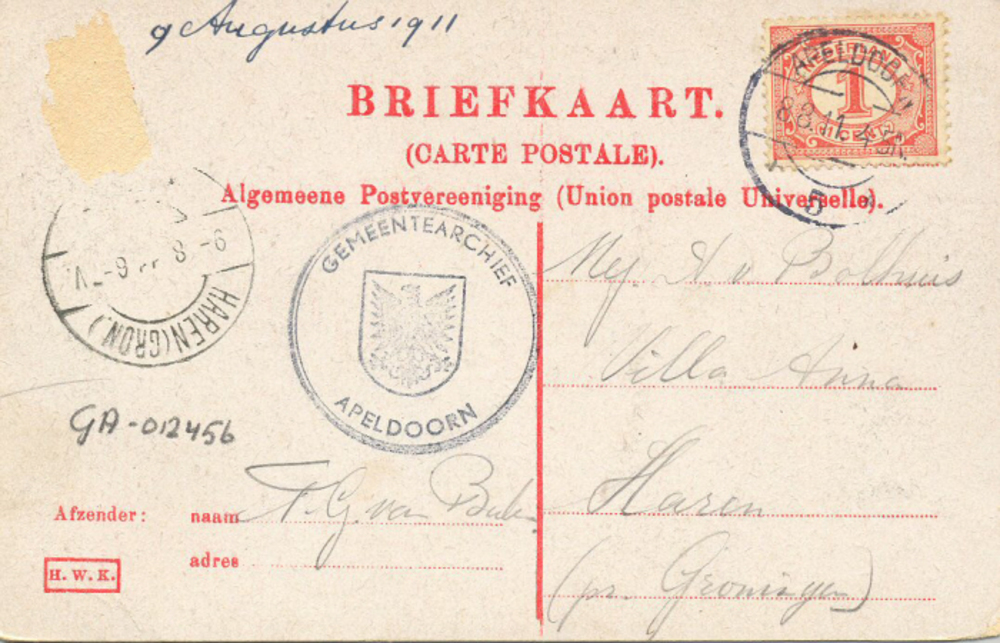 9 Augustus 1911
BRIEFKAART.
(CARTE POSTALE).
Algemeene Postvereeniging (Union postale Universelle).
NEDERLAND
1
CENT
APELDOORN
8.8.11.
5
HAREN (GRON.)
GEMEENTEARCHIEF
APELDOORN
GA-012456
Mej. A. v. Bolhuis
Villa Anna
Haren
(pr. Groningen)
Afzender: naam F. G. van
adres
H. W. K.